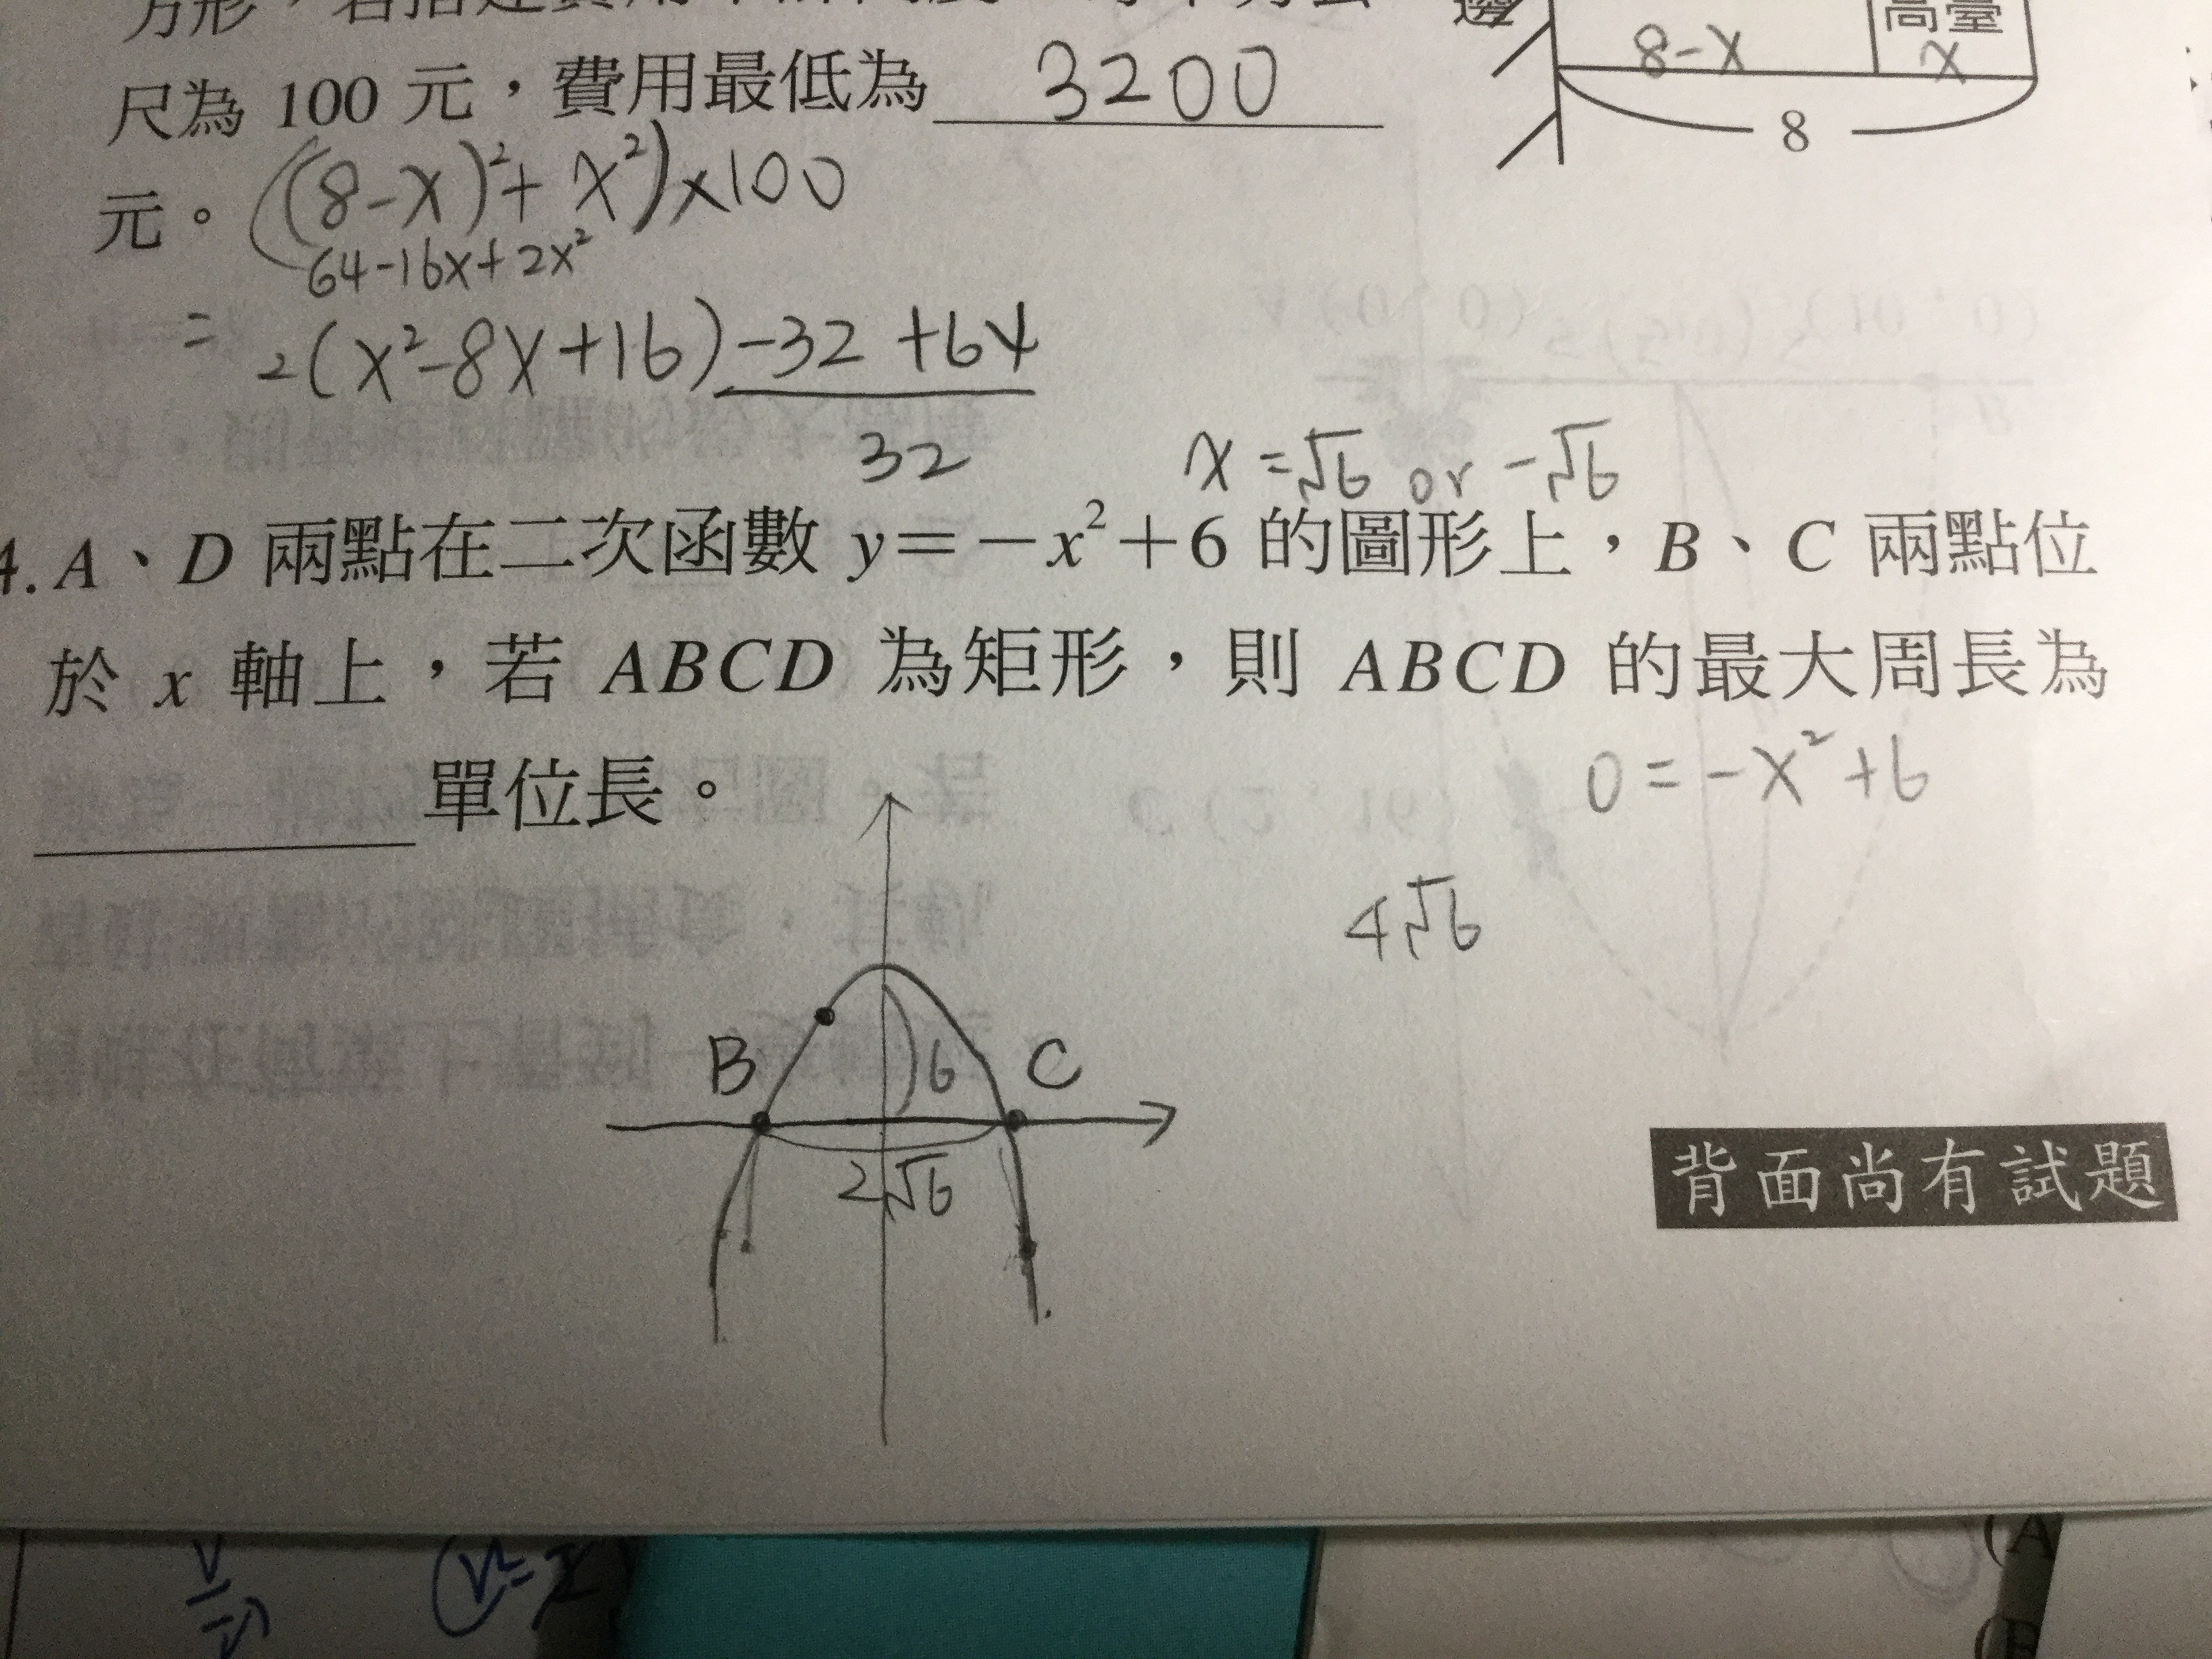 尺為 100 元，費用最低為 3200
元。((8-x)²+x²)×100
64-16x+2x²
= 2(x²-8x+16)-32+64
32
邊
高臺
8-x
x
8
x=√6 or -√6
4. A、D 兩點在二次函數 y=-x²+6 的圖形上，B、C 兩點位
於 x 軸上，若 ABCD 為矩形，則 ABCD 的最大周長為
單位長。
0=-x²+6
4√6
B
6
C
2√6
背面尚有試題
(A